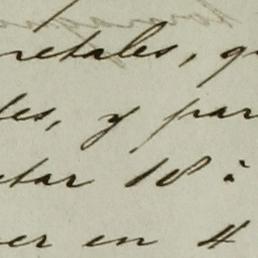 retales, q
les, y par
tar 18 à
er en 4